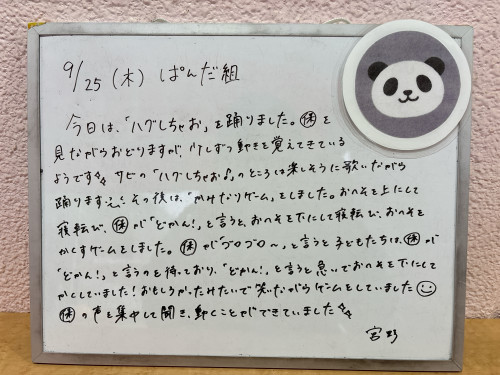 9/25 (木) ぱんだ組
今日は、「ハグしちゃお」を踊りました。㋭を
見ながらおどりますが、少しずつ動きを覚えてきている
ようです☆ サビの「ハグしちゃお♪」のところは楽しそうに歌いながら
踊りますよ! その後は、「かみなりゲーム」をしました。おへそを上にして
寝転び、が「どかん!」と言うと、おへそを下にして寝転び、おへそを
かくすゲームをしました。が「ゴロゴロ〜」と言うと子どもたちは、が
「どかん!」と言うのを待っており、「どかん!」と言うと急いでおへそを下にして
かくしていました! おもしろかったみたいで笑いながらゲームをしていました☺
の声を集中して聞き、動くことができていました☆
宮野